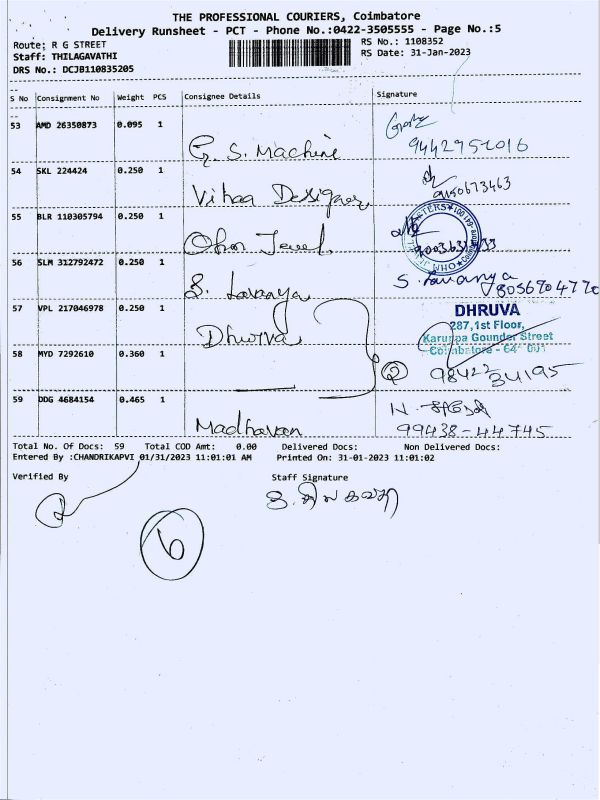 THE PROFESSIONAL COURIERS, Coimbatore
Delivery Runsheet - PCT - Phone No.:0422-3505555 - Page No.:5
Route: R G STREET RS No.: 1108352
Staff: THILAGAVATHI RS Date: 31-Jan-2023
DRS No.: DCJB110835205
S No Consignment No Weight PCS Consignee Details Signature
53 AMD 26350873 0.095 1
G. S. Machine
54 SKL 224424 0.250 1
9150673463
55 BLR 110305794 0.250 1
56 SLM 312792472 0.250 1
S. Lavanya S. Lavanya
57 VPL 217046978 0.250 1
DHRUVA
287,1st Floor,
Karuppa Gounder Street
Coimbatore - 641 001
58 MYD 7292610 0.360 1
2 98422
34195
59 DDG 4684154 0.465 1
Madhavan 99438-44745
Total No. Of Docs: 59 Total COD Amt: 0.00 Delivered Docs: Non Delivered Docs:
Entered By :CHANDRIKAPVI 01/31/2023 11:01:01 AM Printed On: 31-01-2023 11:01:02
Verified By Staff Signature
6